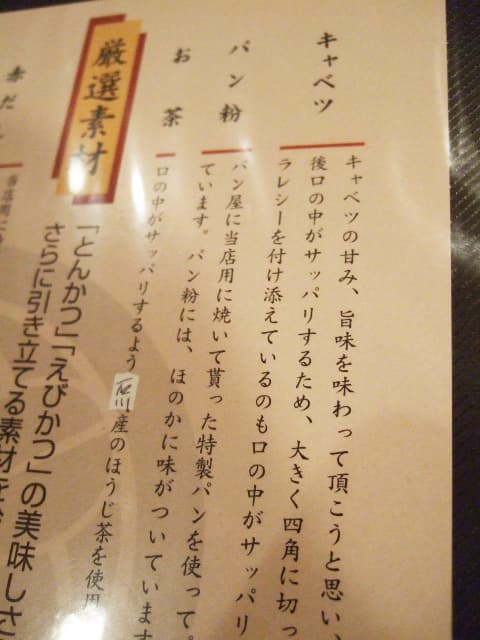 キャベツ
キャベツの甘み、旨味を味わって頂こうと思い、
後口の中がサッパリするため、大きく四角に切っ
ラレシーを付け添えているのも口の中がサッパリ
パン粉
パン屋に当店用に焼いて貰った特製パンを使って
ています。パン粉には、ほのかに味がついています
お茶
口の中がサッパリするよう石川産のほうじ茶を使用
赤だ
厳選素材
「とんかつ」「えびかつ」の美味しさ
さらに引き立てる素材を